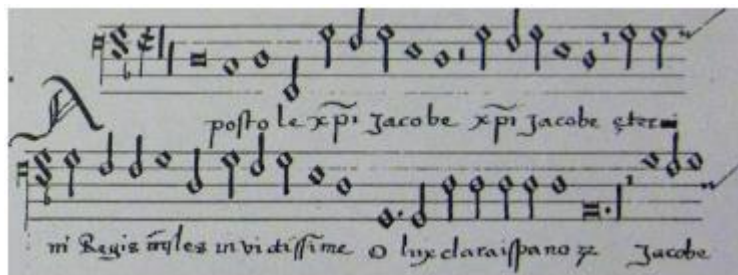 A
posto le xp̄i Jacobe xp̄i Jacobe ęter
ni Regis myles invictissime o lux clara ispano Jacobe